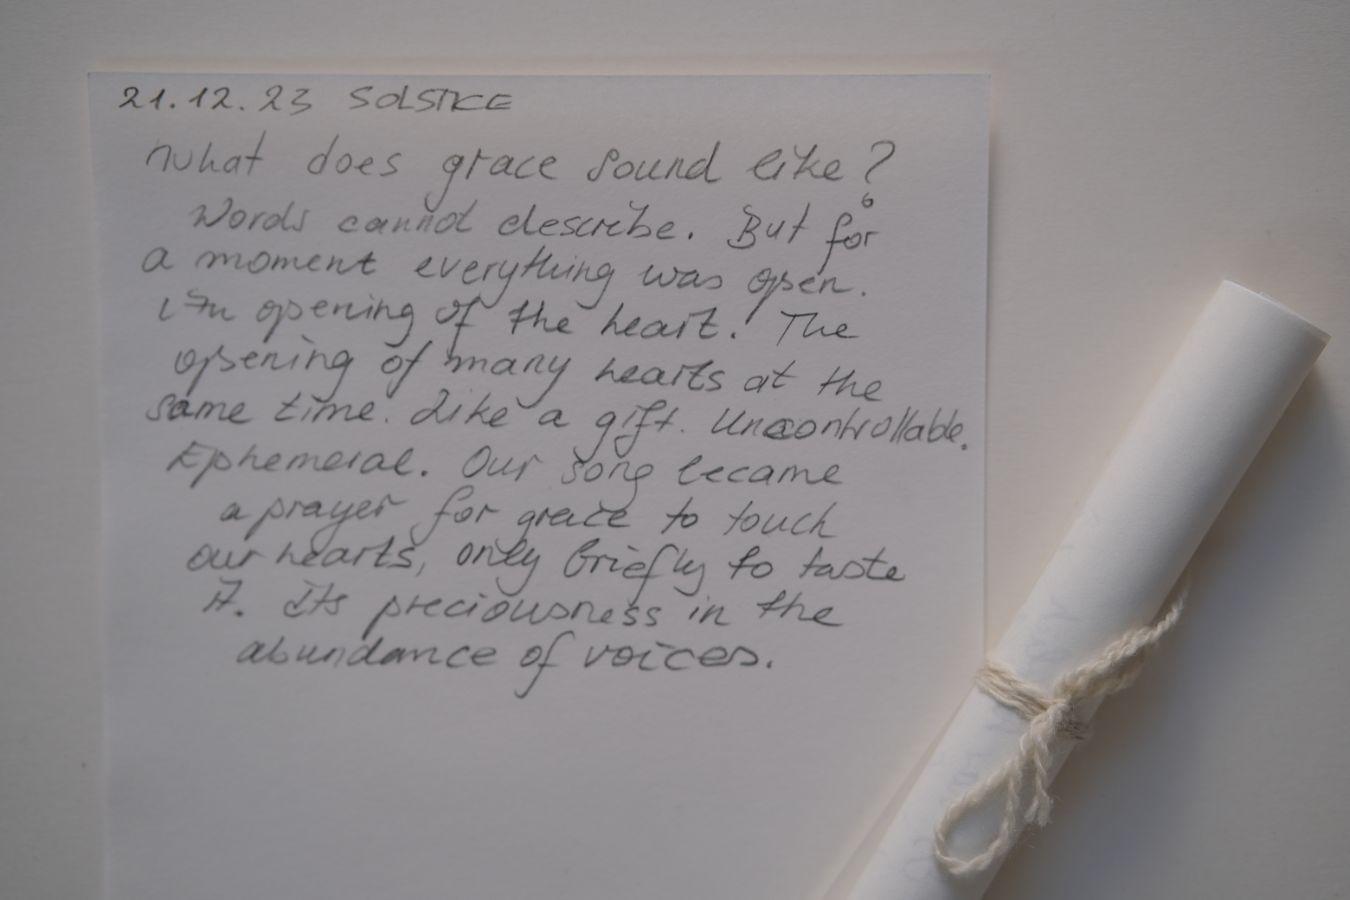 21.12.23 SOLSTICE
What does grace sound like?
Words cannot describe. But for
a moment everything was open.
An opening of the heart. The
opening of many hearts at the
same time. Like a gift. Uncontrollable.
Ephemeral. Our song became
a prayer for grace to touch
our hearts, only briefly to taste
it. Its preciousness in the
abundance of voices.